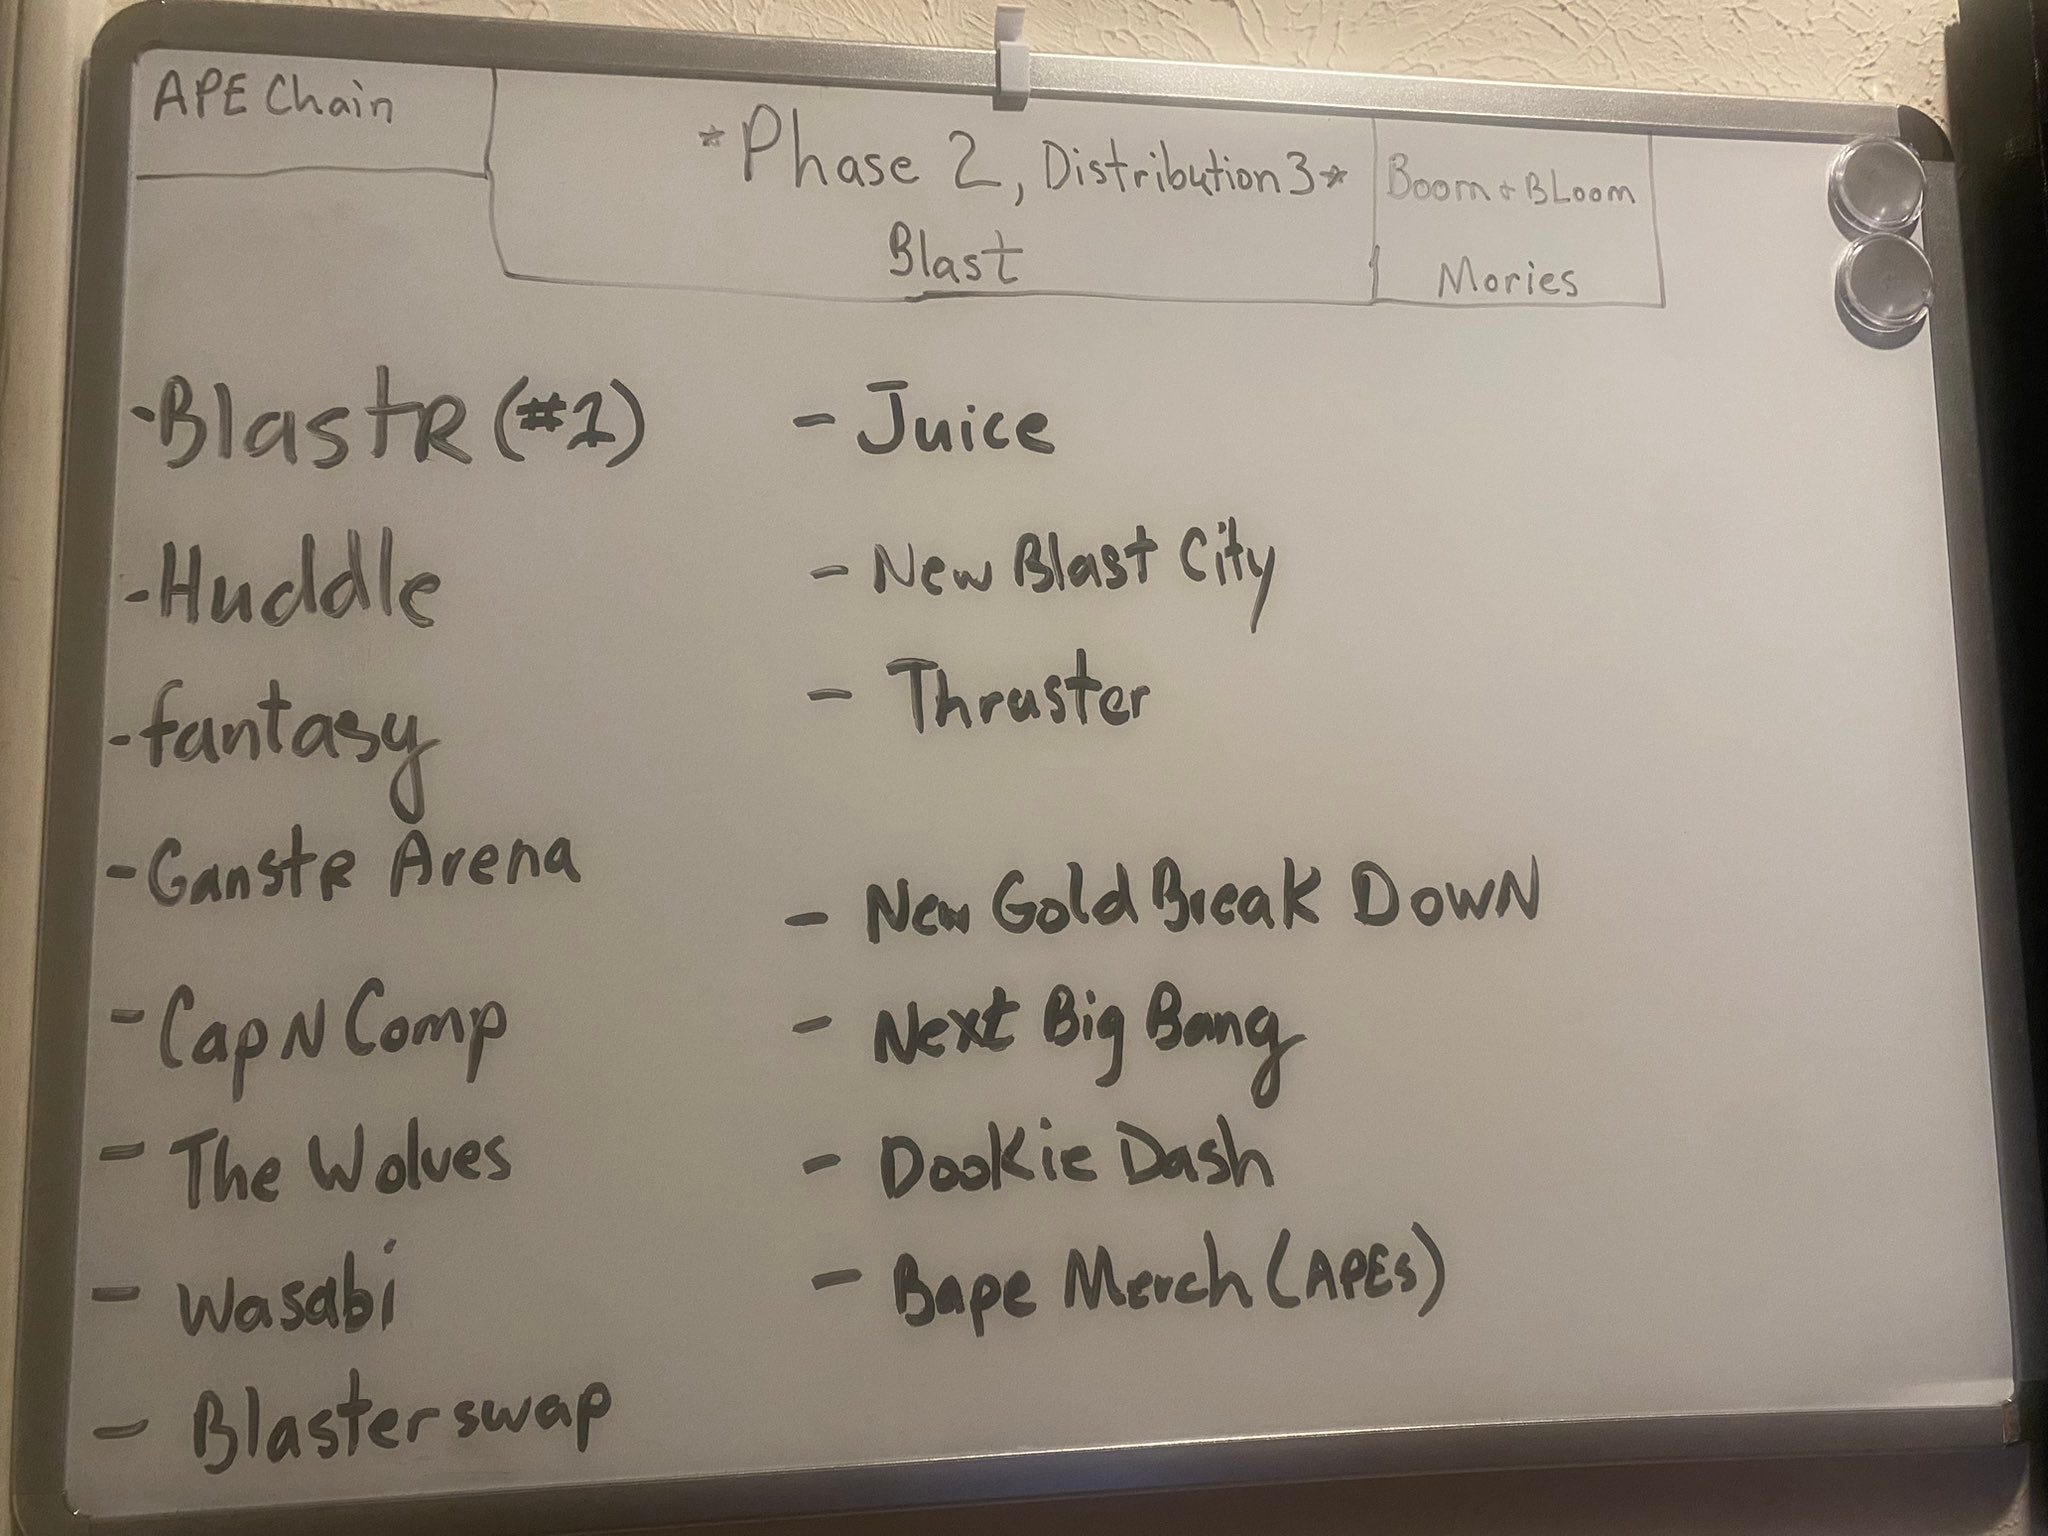 APE Chain
*Phase 2, Distribution 3*
Blast
Boom + BLoom
Mories
- BlastR (#1)
- Huddle
- fantasy
- GanstR Arena
- Cap N Comp
- The Wolves
- Wasabi
- Blasterswap
- Juice
- New Blast City
- Thruster
- New Gold Break DowN
- Next Big Bang
- Dookie Dash
- Bape Merch (APEs)